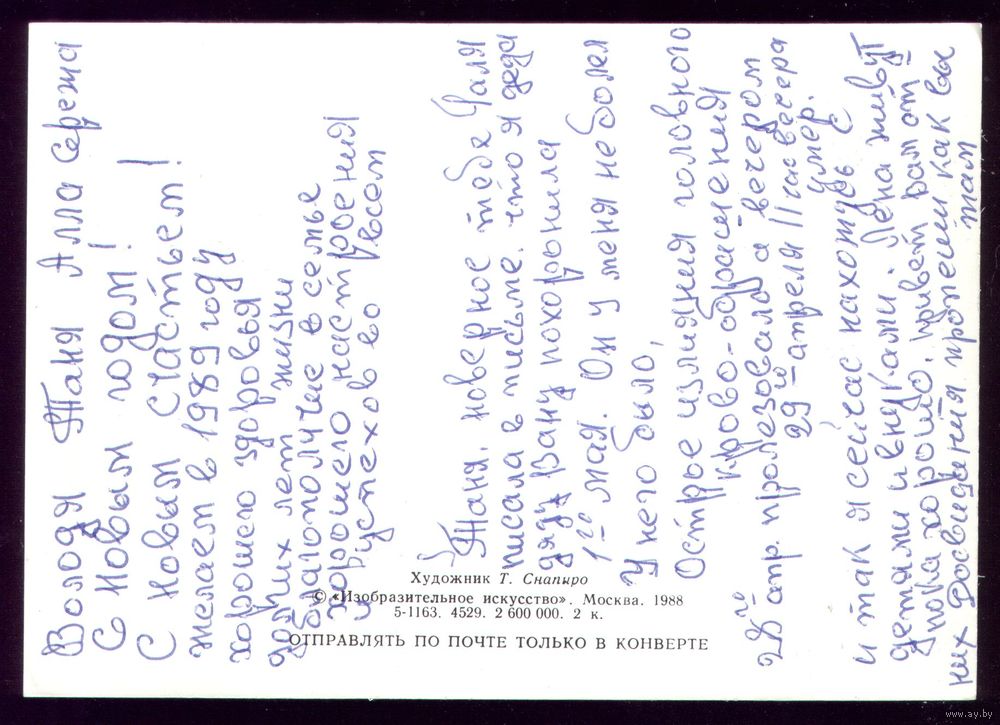 Володя Таня Алла Сережа
С Новым годом!
С новым счастьем!
желаем в 1989 году
хорошего здоровья
долгих лет жизни
благополучие в семье
хорошего настроения
и успехов во всем
Таня, наверное тебе Фаля
писала в письме. что я деда
дядю Ваню похоронила
1го мая. Он у меня не болел
У него было,
Острые излияния головного
крово-обращения
28го апр. пролезовало а вечером
29го апреля 11 час вечера
умер.
и так я сейчас нахотусь с
детями и внуками. Лена живут
пока хорошо. привет вам от
них Досвидания пропешы как вы
там
Художник Т. Снапиро
© «Изобразительное искусство». Москва. 1988
5-1163. 4529. 2 600 000. 2 к.
ОТПРАВЛЯТЬ ПО ПОЧТЕ ТОЛЬКО В КОНВЕРТЕ
www.ay.by